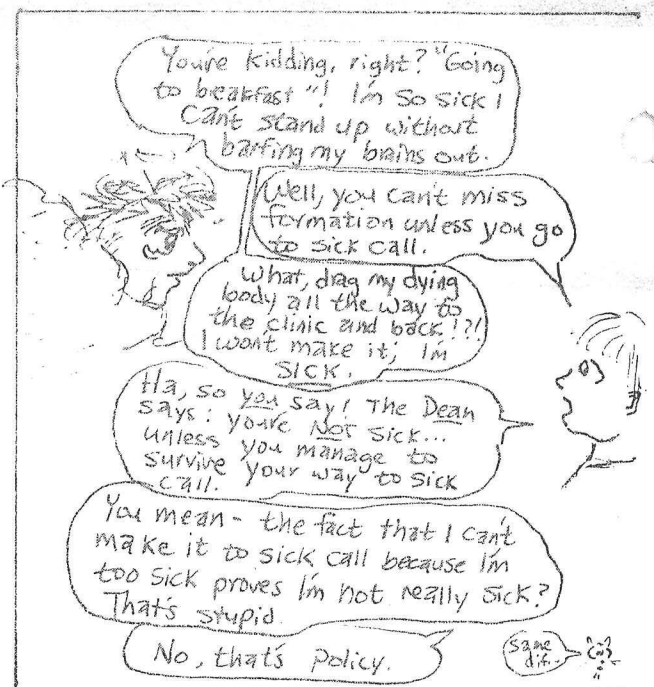 You're kidding, right? "Going
to beakfast"! I'm so sick I
can't stand up without
barfing my brains out.
Well, you can't miss
formation unless you go
to sick call.
What, drag my dying
body all the way to
the clinic and back!?!
I won't make it; I'm
SICK.
Ha, so you say! The Dean
says: you're NOT sick...
unless you manage to
survive your way to sick
call.
You mean - the fact that I can't
make it to sick call because I'm
too sick proves I'm not really sick?
That's stupid.
No, that's policy.
same
dif..